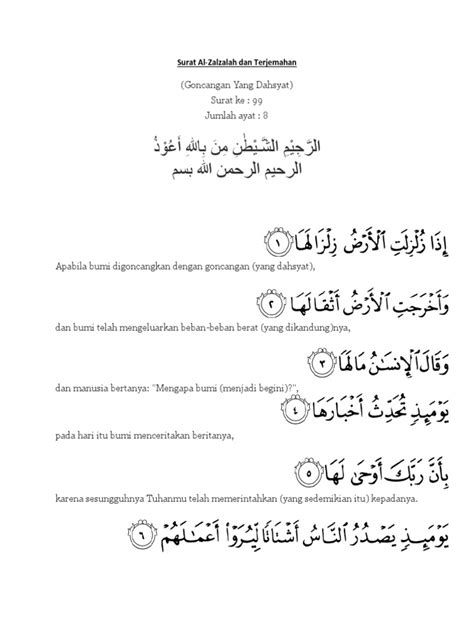 Surat Al-Zalzalah dan Terjemahan
(Goncangan Yang Dahsyat)
Surat ke : 99
Jumlah ayat : 8
الرَّجِيْمِ الشَّيْطٰنِ مِنَ بِاللهِ أَعُوْذُ
الرحيم الرحمن الله بسم
إِذَا زُلْزِلَتِ ٱلْأَرْضُ زِلْزَالَهَا ١
Apabila bumi digoncangkan dengan goncangan (yang dahsyat),
وَأَخْرَجَتِ ٱلْأَرْضُ أَثْقَالَهَا ٢
dan bumi telah mengeluarkan beban-beban berat (yang dikandung)nya,
وَقَالَ ٱلْإِنسَـٰنُ مَا لَهَا ٣
dan manusia bertanya: "Mengapa bumi (menjadi begini)?",
يَوْمَئِذٍ تُحَدِّثُ أَخْبَارَهَا ٤
pada hari itu bumi menceritakan beritanya,
بِأَنَّ رَبَّكَ أَوْحَىٰ لَهَا ٥
karena sesungguhnya Tuhanmu telah memerintahkan (yang sedemikian itu) kepadanya.
يَوْمَئِذٍ يَصْدُرُ ٱلنَّاسُ أَشْتَاتًا لِّيُرَوْا۟ أَعْمَـٰلَهُمْ ٦